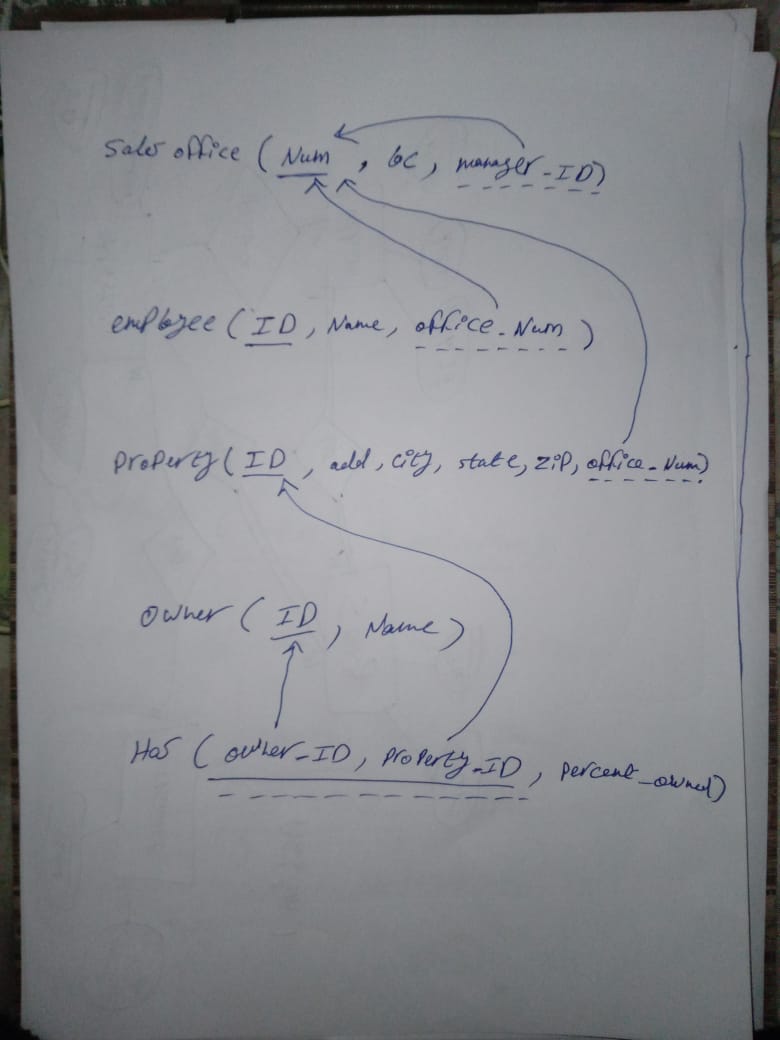 Sales office ( Num , loc, manager-ID)
employee ( ID , Name, office-Num )
Property ( ID , add, City, state, ZiP, office-Num)
Owner ( ID , Name )
Has ( owner-ID, Property-ID, Percent-owned)